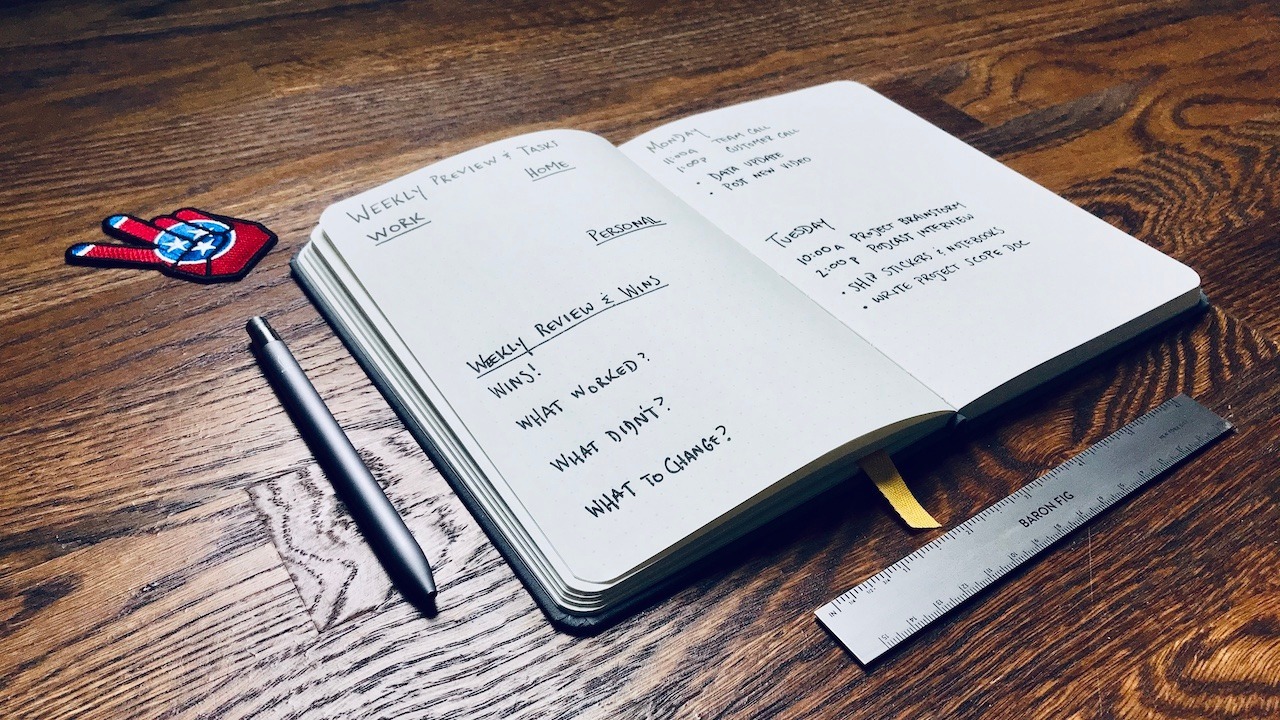 WEEKLY PREVIEW & TASKS
WORK
HOME
PERSONAL
WEEKLY REVIEW & WINS
WINS!
WHAT WORKED?
WHAT DIDN'T?
WHAT TO CHANGE?
MONDAY
11:00A TEAM CALL
1:00P CUSTOMER CALL
• DATA UPDATE
• POST NEW VIDEO
TUESDAY
10:00A PROJECT BRAINSTORM
2:00P PODCAST INTERVIEW
• SHIP STICKERS & NOTEBOOKS
• WRITE PROJECT SCOPE DOC
BARON FIG
IN